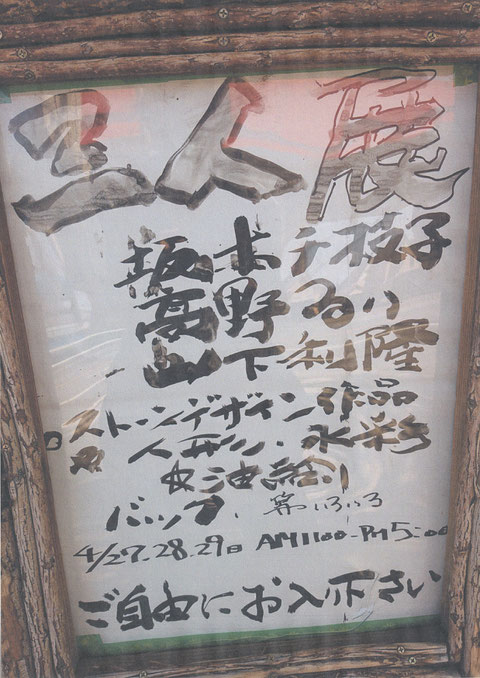 三人展
坂本千枝子
高野るり
山下利隆
ストーンデザイン作品
人形、水彩
油絵
バッグ、等いろいろ
4/27.28.29日 AM1100-PM5:00
ご自由にお入下さい